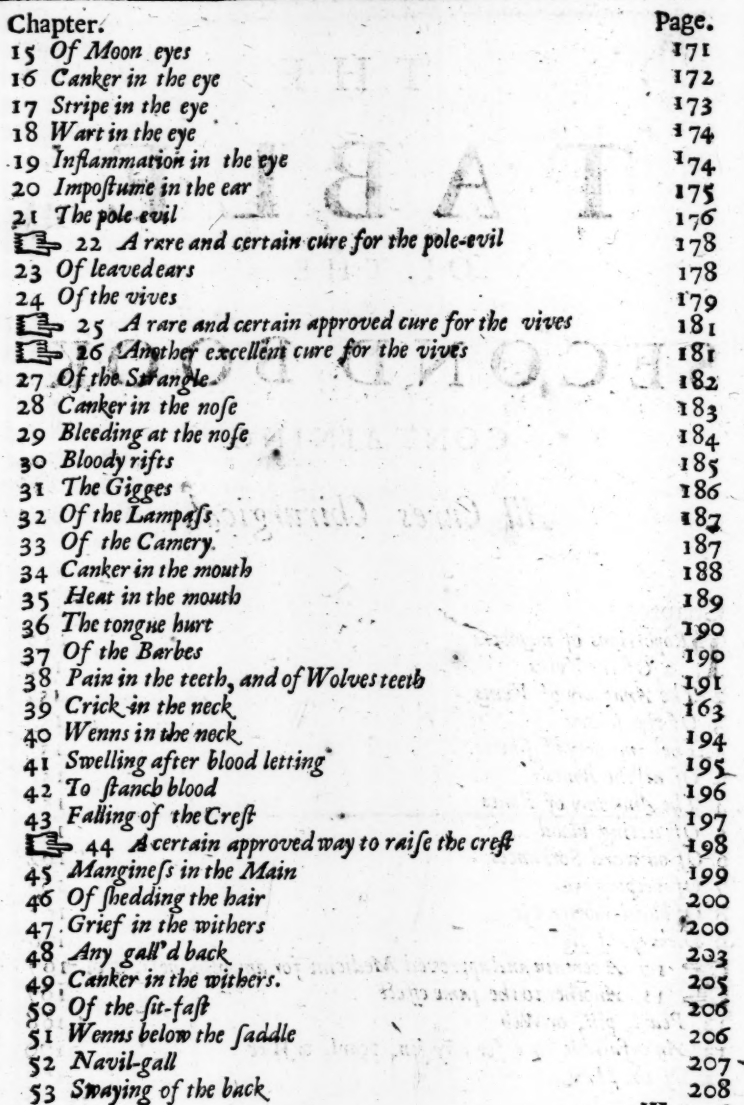 Chapter. Page.
15 Of Moon eyes 171
16 Canker in the eye 172
17 Stripe in the eye 173
18 Wart in the eye 174
19 Inflammation in the eye 174
20 Impoſtume in the ear 175
21 The pole evil 176
☞ 22 A rare and certain cure for the pole-evil 178
23 Of leavedears 178
24 Of the vives 179
☞ 25 A rare and certain approved cure for the vives 181
☞ 26 Another excellent cure for the vives 181
27 Of the Strangle 182
28 Canker in the noſe 183
29 Bleeding at the noſe 184
30 Bloody rifts 185
31 The Gigges 186
32 Of the Lampaſs 187
33 Of the Camery. 187
34 Canker in the mouth 188
35 Heat in the mouth 189
36 The tongue hurt 190
37 Of the Barbes 190
38 Pain in the teeth, and of Wolves teeth 191
39 Crick in the neck 163
40 Wenns in the neck 194
41 Swelling after blood letting 195
42 To ſtanch blood 196
43 Falling of the Creſt 197
☞ 44 A certain approved way to raiſe the creſt 198
45 Mangineſs in the Main 199
46 Of ſhedding the hair 200
47 Grief in the withers 200
48 Any gall'd back 203
49 Canker in the withers. 205
50 Of the ſit-faſt 206
51 Wenns below the ſaddle 206
52 Navil-gall 207
53 Swaying of the back 208